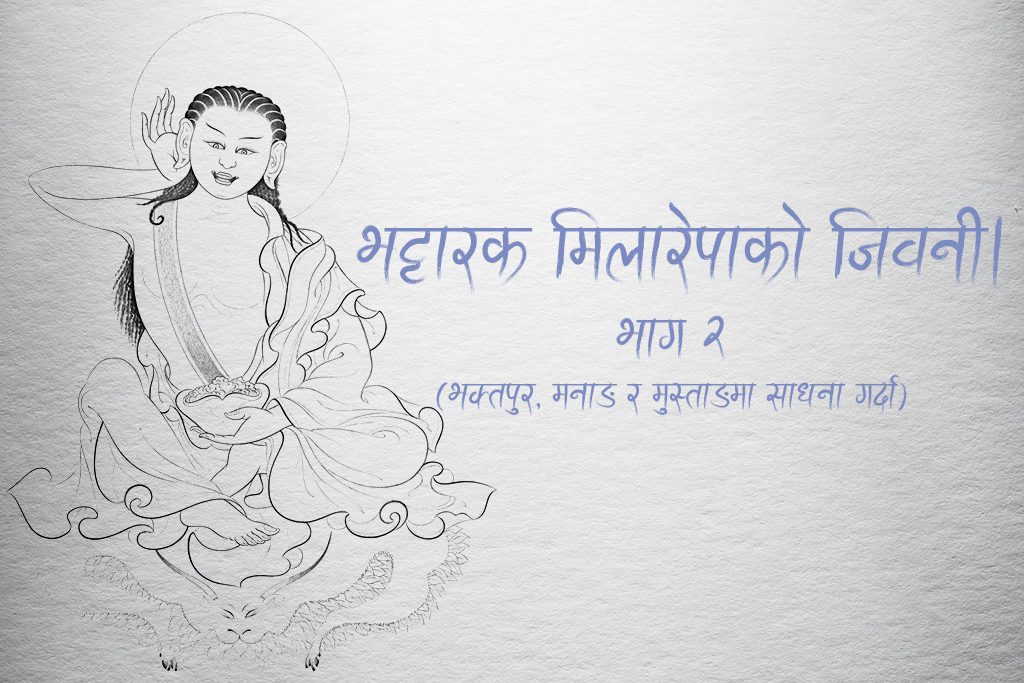 भट्टारक मिलारेपाको जिवनी।
भाग २
(भक्तपुर, मनाङ र मुस्ताङमा साधना गर्दा)